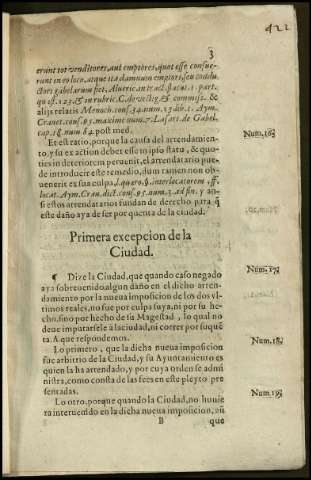 422
3
erunt tot venditores, aut emptores, quot esse consueue-
runt in eo loco, atque ita damnum emptori, seu conductori
gabellarum fiet, Aluericun tract. stat. 1. part.
quæst. 123. & in rubric. C. de vectig. & commiss. &
alijs relatis Menoch. cons. 340. num. 15. lib. 4. Aym.
Crauet. cons. 95. maxime num. 7. Lasart. de Gabel.
cap. 18. num 84. post med.
Et est ratio, porque la causa del arrendamien-
to, y su execution debet esse in ipso statu, & quo-
ties in deteriorem peruenit, el arrendatario pue-
de introducir este remedio, dum tamen non ob-
uenerit ex sua culpa,
locat. Aym. Crau. dict. cons. 95. num. 3. ad fin. y an-
si estos arrendatarios fundan de derecho para q̃
este daño aya de ser por quenta de la ciudad.
Primera excepcion de la
Ciudad.
¶ Dize la Ciudad, que quando caso negado
aya sobreuenido algun daño en el dicho arren-
damiento por la nueua imposicion de los dos vl-
timos reales, no fue por culpa suya, ni por su he-
cho, sino por hecho de su Magestad, lo qual no
deue imputarsele a la ciudad, ni correr por su que-
ta. A que respondemos.
Lo primero, que la dicha nueua imposicion
fue arbitrio de la Ciudad, y su Ayuntamiento es
quien la ha arrendado, y por cuya orden se admi
nistra, como consta de las fees en este pleyto pre
sentadas.
Lo otro, porque quando la Ciudad, no huuie
ra interuenido en la dicha nueua imposicion, aũ
B que
Num. 16.
Num. 17.
Num. 18.
Num. 19.